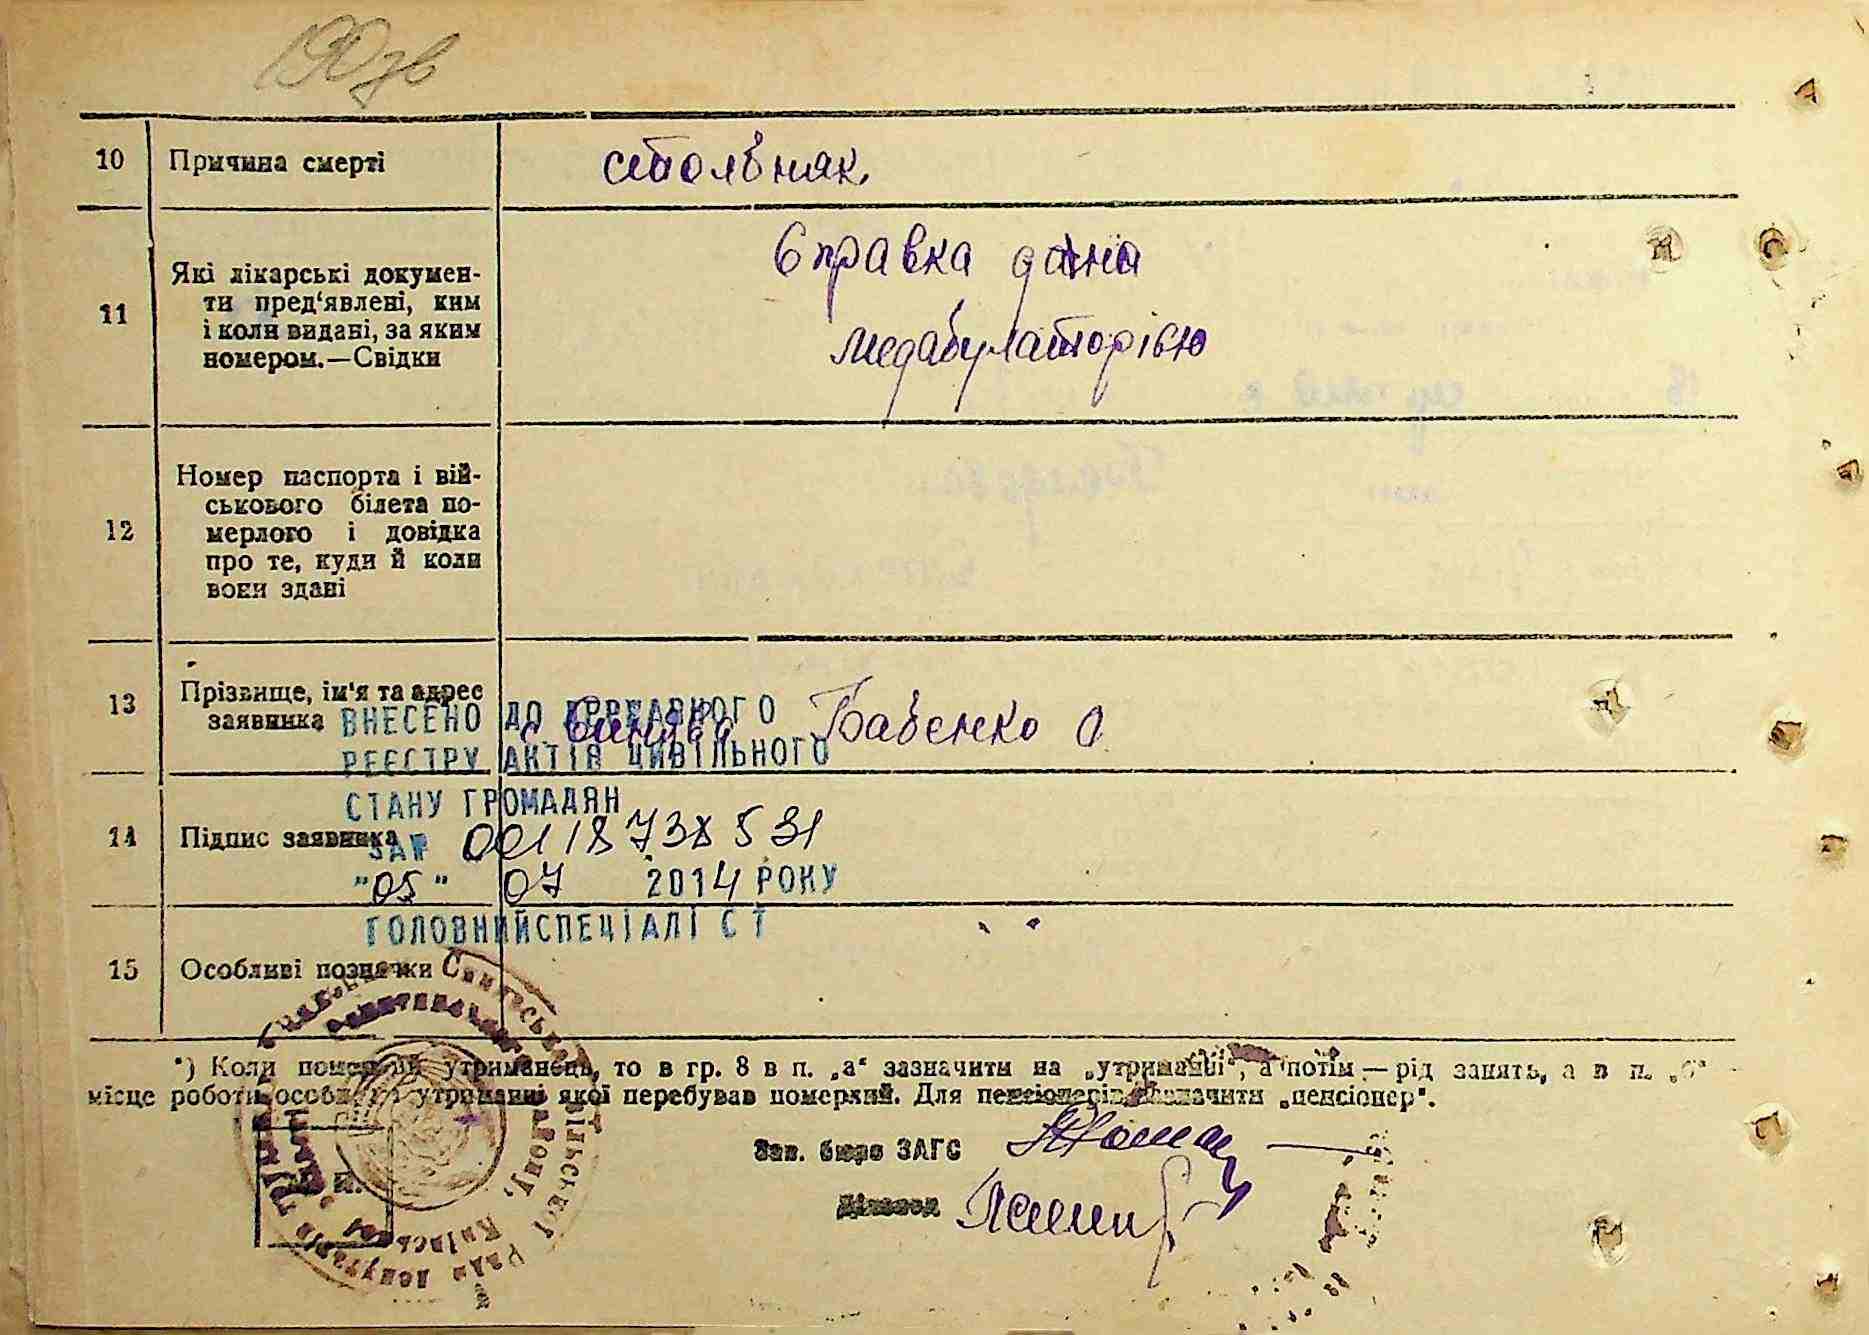 10 Причина смерті столбняк
11 Які лікарські докумен-
ти пред'явлені, ким
і коли видані, за яким
номером.—Свідки
Справка дана
медабулаторією
12 Номер паспорта і вій-
ськового білета по-
мерлого і довідка
про те, куди й коли
вони здані
13 Прізвище, ім'я та адрес
заявника
с Винява Бабенко О
ВНЕСЕНО ДО ДЕРЖАВНОГО
РЕЄСТРУ АКТІВ ЦИВІЛЬНОГО
СТАНУ ГРОМАДЯН
14 Підпис заявника
ЗА № 00118738531
"05" 07 2014 РОКУ
ГОЛОВНИЙ СПЕЦІАЛІСТ
15 Особливі позначки
*) Коли померлий утриманець, то в гр. 8 в п. „а“ зазначити на „утриманні“, а потім — рід занять, а в п. „б“ —
місце роботи особи, на утриманні якої перебував померлий. Для пенсіонерів зазначити „пенсіонер“.
Зав. бюро ЗАГС
Діловод